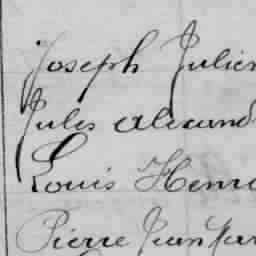 Joseph Julien
Jules Alexand
Louis Henri
Pierre Jean